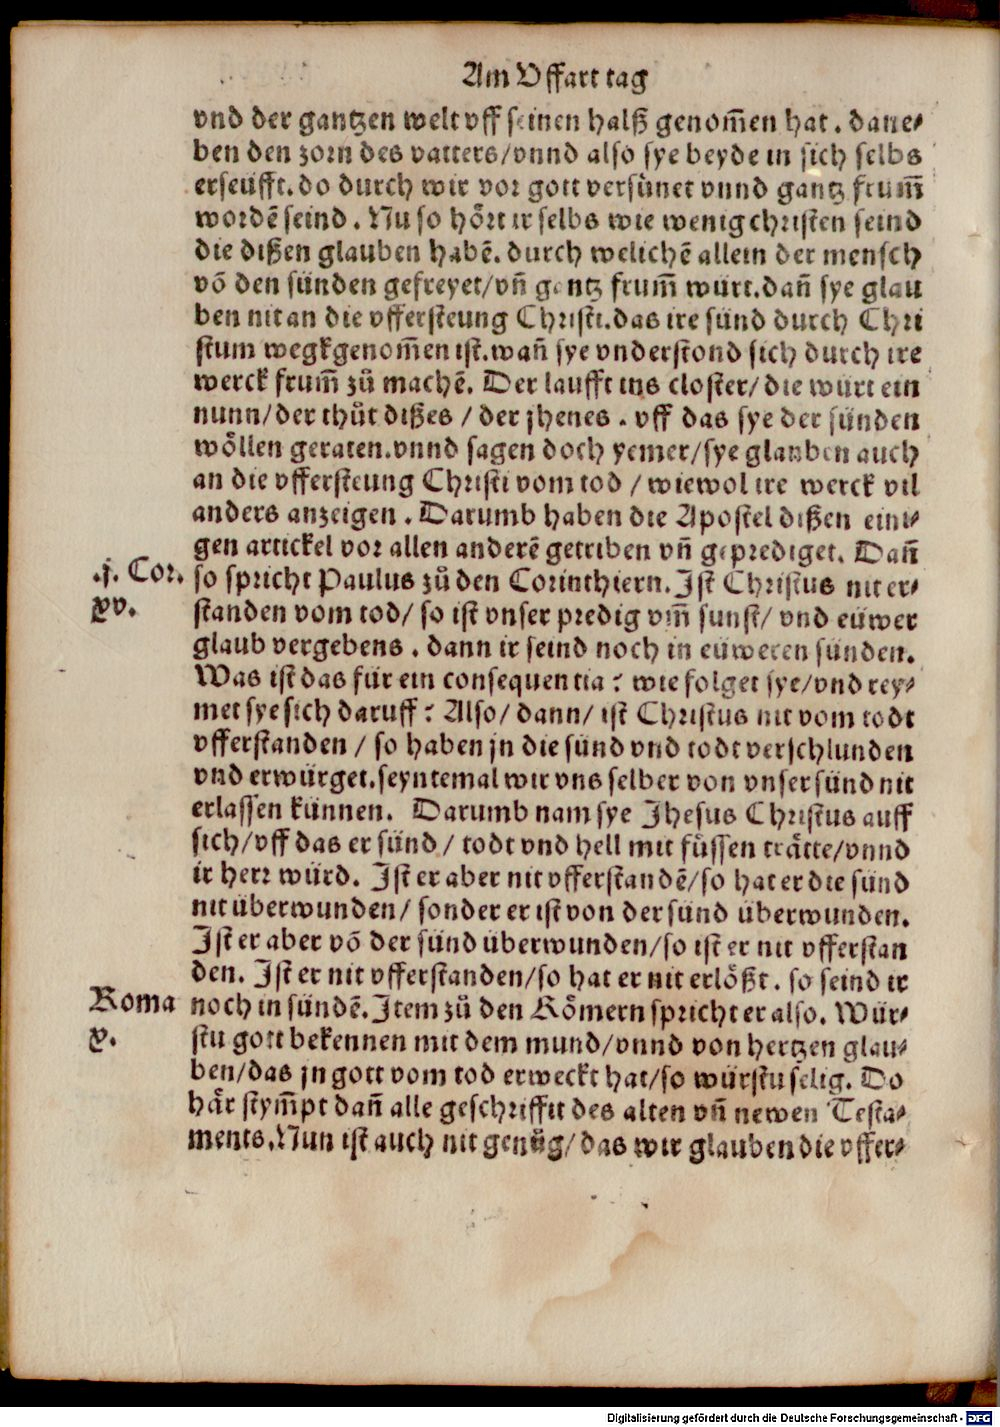 Am Uffart tag
vnd der gantzen welt vff seinen halß genom̃en hat. dane⸗
ben den zorn des vatters/vnnd also sye beyde in sich selbs
erseüfft. do durch wir vor gott versünet vnnd gantz frum̃
wordē seind. Nu so hört ir selbs wie wenig christen seind
die dißen glauben habē. durch welichē allein der mensch
vō den sünden gefreyet/vñ gantz frum̃ würt. dañ sye glau
ben nit an die vffersteung Christi. das ire sünd durch Chri
stum wegkgenom̃en ist. wañ sye vnderstond sich durch ire
werck frum̃ zů machē. Der laufft ins closter/ die würt ein
nunn/der thůt dißes / der jhenes. vff das sye der sünden
wöllen geraten. vnnd sagen doch yemer/sye glauben auch
an die vffersteung Christi vom tod / wiewol ire werck vil
anders anzeigen. Darumb haben die Apostel dißen eini⸗
gen artickel vor allen anderē getriben vñ geprediget. Dañ
.j. Cor.
xv.
so spricht Paulus zů den Corinthiern. Ist Christus nit er⸗
standen vom tod/ so ist vnser predig vm̃ sunst/ vnd eüwer
glaub vergebens. dann ir seind noch in eüweren sünden.
Was ist das für ein consequentia? wie folget sye/vnd rey⸗
met sye sich daruff? Also/ dann/ ist Christus nit vom todt
vfferstanden / so haben jn die sünd vnd todt verschlunden
vnd erwürget. seyntemal wir vns selber von vnser sünd nit
erlassen künnen. Darumb nam sye Jhesus Christus auff
sich/vff das er sünd/ todt vnd hell mit füssen trätte/vnnd
ir herr würd. Ist er aber nit vfferstandē/so hat er die sünd
nit überwunden/ sonder er ist von der sünd überwunden.
Ist er aber vō der sünd überwunden/so ist er nit vfferstan
den. Ist er nit vfferstanden/so hat er nit erlößt. so seind ir
Roma
x.
noch in sündē. Item zů den Römern spricht er also. Wür⸗
stu gott bekennen mit dem mund/vnnd von hertzen glau⸗
ben/das jn gott vom tod erweckt hat/so würstu selig. Do
här stym̃pt dañ alle geschrifft des alten vñ newen Testa⸗
ments. Nun ist auch nit genůg/das wir glauben die vffer⸗
Digitalisierung gefördert durch die Deutsche Forschungsgemeinschaft - DFG